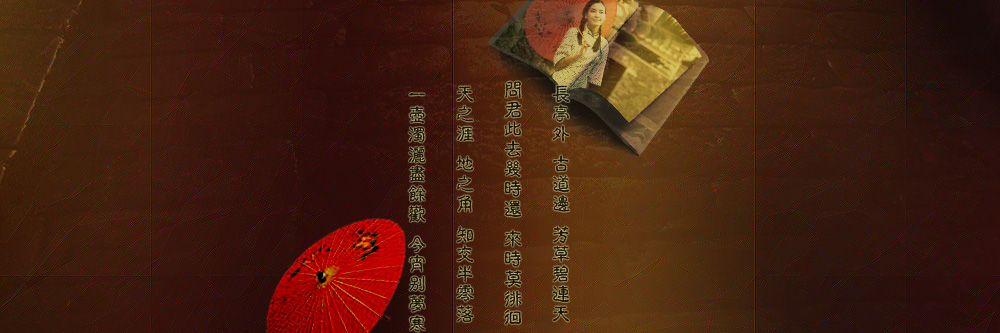 長亭外 古道邊 芳草碧連天
問君此去幾時還 來時莫徘徊
天之涯 地之角 知交半零落
一壺濁灑盡餘歡 今宵别夢寒